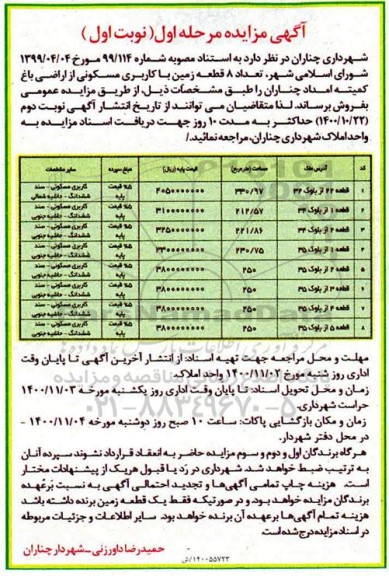 آگهی مزایده مرحله اول( نوبت اول )
شهرداری چناران در نظر دارد به استناد مصوبه شماره ۹۹/۱۱۴ مورخ ۱۳۹۹/۰۴/۰۴
شورای اسلامی شهر، تعداد ۸ قطعه زمین با کاربری مسکونی از اراضی باغ
کمیته امداد چناران را طبق مشخصات ذیل، از طریق مزایده عمومی
بفروش برساند. لذا متقاضیان می توانند از تاریخ انتشار آگهی نوبت دوم
(۱۴۰۰/۱۰/۲۲) حداکثر به مدت ۱۰ روز جهت دریافت اسناد مزایده به
واحد املاک شهرداری چناران، مراجعه نمائید./
کد آدرس ملک مساحت (مترمربع) قیمت پایه (ریال) مبلغ سپرده سایر مشخصات
۱ قطعه ۲۲ از بلوک ۳۲ ۳۳۰/۹۷ ۴۰۵۰۰۰۰۰۰۰ ۵% قیمت پایه کاربری مسکونی - سند ششدانگ - حاشیه شمالی
۲ قطعه ۱ از بلوک ۳۴ ۲۱۲/۵۷ ۳۱۰۰۰۰۰۰۰۰ ۵% قیمت پایه کاربری مسکونی - سند ششدانگ - حاشیه جنوبی
۳ قطعه ۲ از بلوک ۳۴ ۲۲۱/۸۶ ۳۲۵۰۰۰۰۰۰۰ ۵% قیمت پایه کاربری مسکونی - سند ششدانگ - حاشیه جنوبی
۴ قطعه ۱ از بلوک ۳۵ ۲۳۰/۷۵ ۳۳۰۰۰۰۰۰۰۰ ۵% قیمت پایه کاربری مسکونی - سند ششدانگ - حاشیه جنوبی
۵ قطعه ۲ از بلوک ۳۵ ۲۵۰ ۳۸۰۰۰۰۰۰۰۰ ۵% قیمت پایه کاربری مسکونی - سند ششدانگ - حاشیه جنوبی
۶ قطعه ۳ از بلوک ۳۵ ۲۵۰ ۳۸۰۰۰۰۰۰۰۰ ۵% قیمت پایه کاربری مسکونی - سند ششدانگ - حاشیه جنوبی
۷ قطعه ۴ از بلوک ۳۵ ۲۵۰ ۳۸۰۰۰۰۰۰۰۰ ۵% قیمت پایه کاربری مسکونی - سند ششدانگ - حاشیه جنوبی
۸ ۲۵۰ ۳۸۰۰۰۰۰۰۰۰ ۵% قیمت پایه کاربری مسکونی - سند ششدانگ - حاشیه جنوبی
مهلت و محل مراجعه جهت تهیه اسناد: از انتشار آخرین آگهی تا پایان وقت
اداری روز شنبه مورخ ۱۴۰۰/۱۱/۰۲ واحد املاک.
زمان و محل تحویل اسناد: تا پایان وقت اداری روز یکشنبه مورخه ۱۴۰۰/۱۱/۰۳
حراست شهرداری.
زمان و مکان بازگشایی پاکات: ساعت ۱۰ صبح روز دوشنبه مورخه ۱۴۰۰/۱۱/۰۴ -
در محل دفتر شهردار.
هرگاه برندگان اول و دوم و سوم مزایده حاضر به انعقاد قرارداد نشوند سپرده آنان
به ترتیب ضبط خواهد شد. شهرداری در رد یا قبول هریک از پیشنهادات مختار
است. هزینه چاپ تمامی آگهی‌ها و تجدید احتمالی آگهی به نسبت برعهده
برندگان مزایده خواهد بود. و در صورتیکه فقط یک قطعه زمین برنده داشته باشد
هزینه تمام آگهی‌ها برعهده آن برنده خواهد بود. سایر اطلاعات و جزئیات مربوطه
در اسناد مزایده درج شده است.
حمیدرضا داورزنی - شهردار چناران
۱۴۰۰۵۵۷۲۳/ش
۰۲۱-۸۸۳۴۹۶۷۰-۵